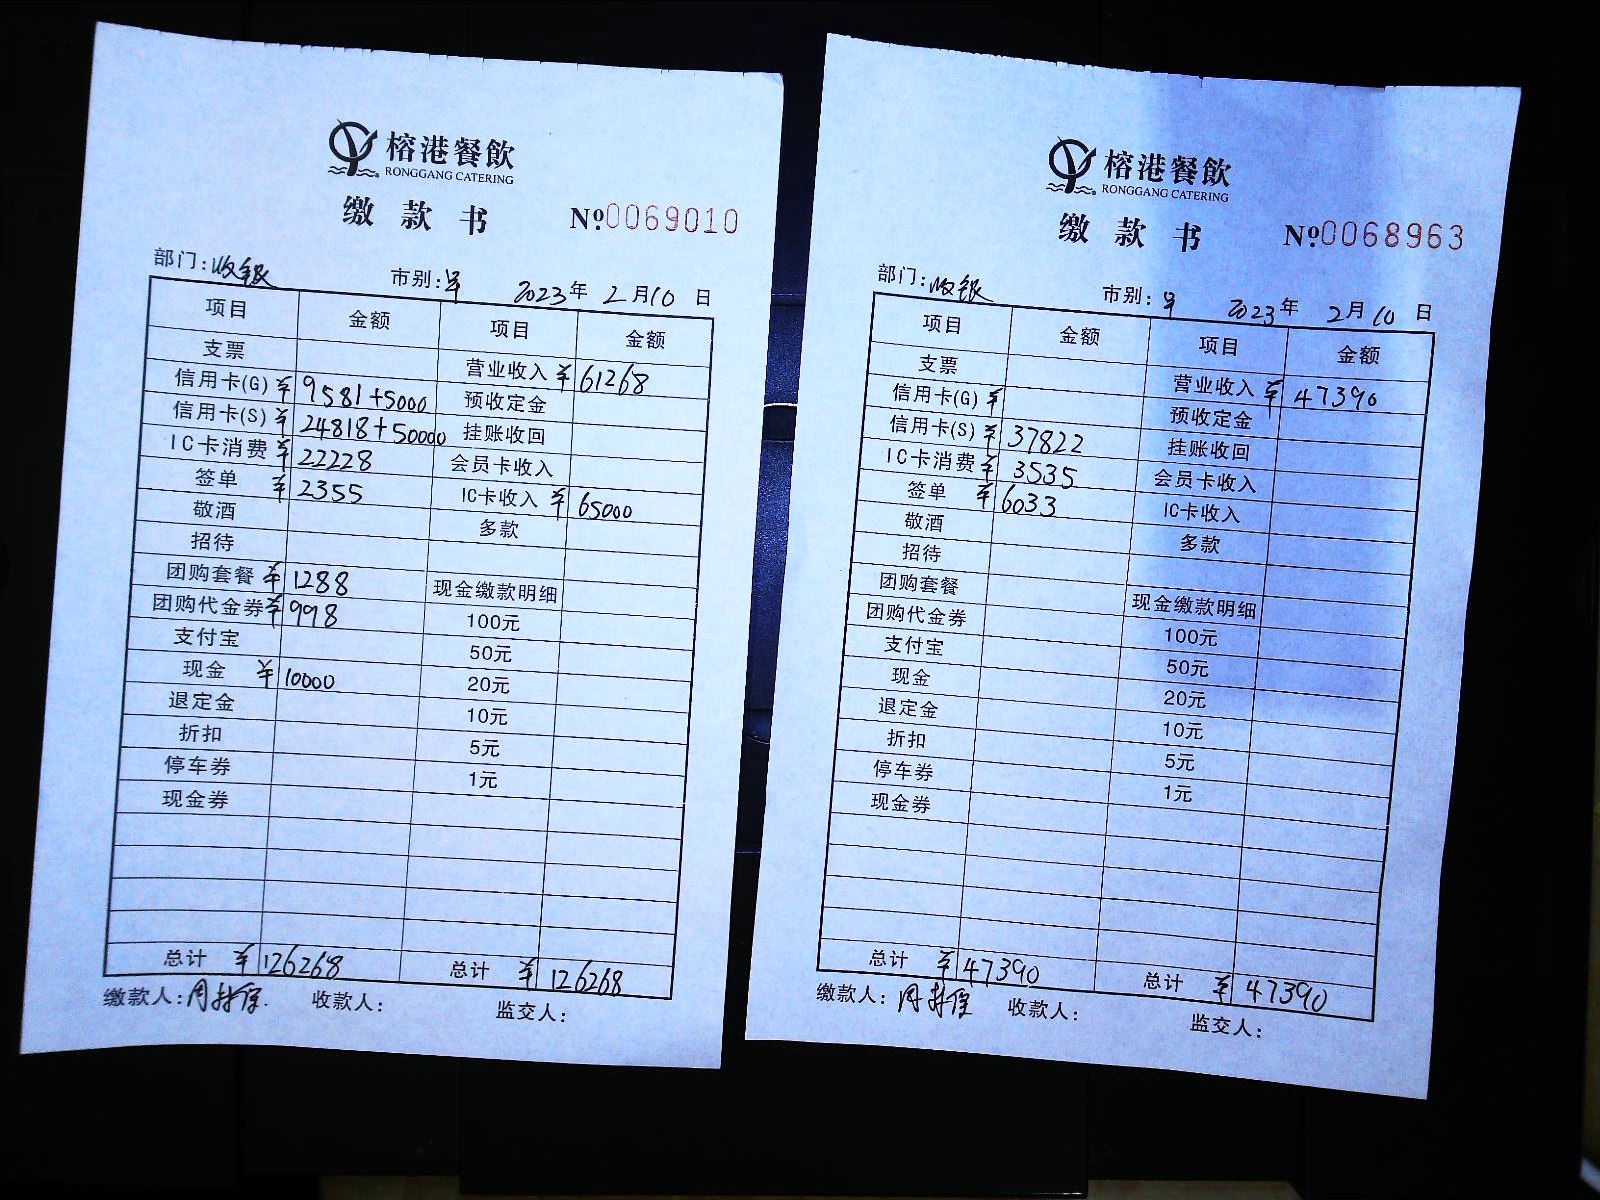 榕港餐飲
RONGGANG CATERING
缴款书 №0069010
部门:收银 市别:早 2023年 2月10日
项目 金额 项目 金额
支票 营业收入 ¥61268
信用卡(G) ¥9581+5000 预收定金
信用卡(S) ¥24818+50000 挂账收回
IC卡消费 ¥22228 会员卡收入
签单 ¥2355 IC卡收入 ¥65000
敬酒 多款
招待
团购套餐 ¥1288 现金缴款明细
团购代金券 ¥998 100元
支付宝 50元
现金 ¥10000 20元
退定金 10元
折扣 5元
停车券 1元
现金券
总计 ¥126268 总计 ¥126268
缴款人:周 收款人: 监交人:
榕港餐飲
RONGGANG CATERING
缴款书 №0068963
部门:收银 市别:早 2023年 2月10日
项目 金额 项目 金额
支票 营业收入 ¥47390
信用卡(G) ¥ 预收定金
信用卡(S) ¥37822 挂账收回
IC卡消费 ¥3535 会员卡收入
签单 ¥6033 IC卡收入
敬酒 多款
招待
团购套餐 现金缴款明细
团购代金券 100元
支付宝 50元
现金 20元
退定金 10元
折扣 5元
停车券 1元
现金券
总计 ¥47390 总计 ¥47390
缴款人:周 收款人: 监交人: